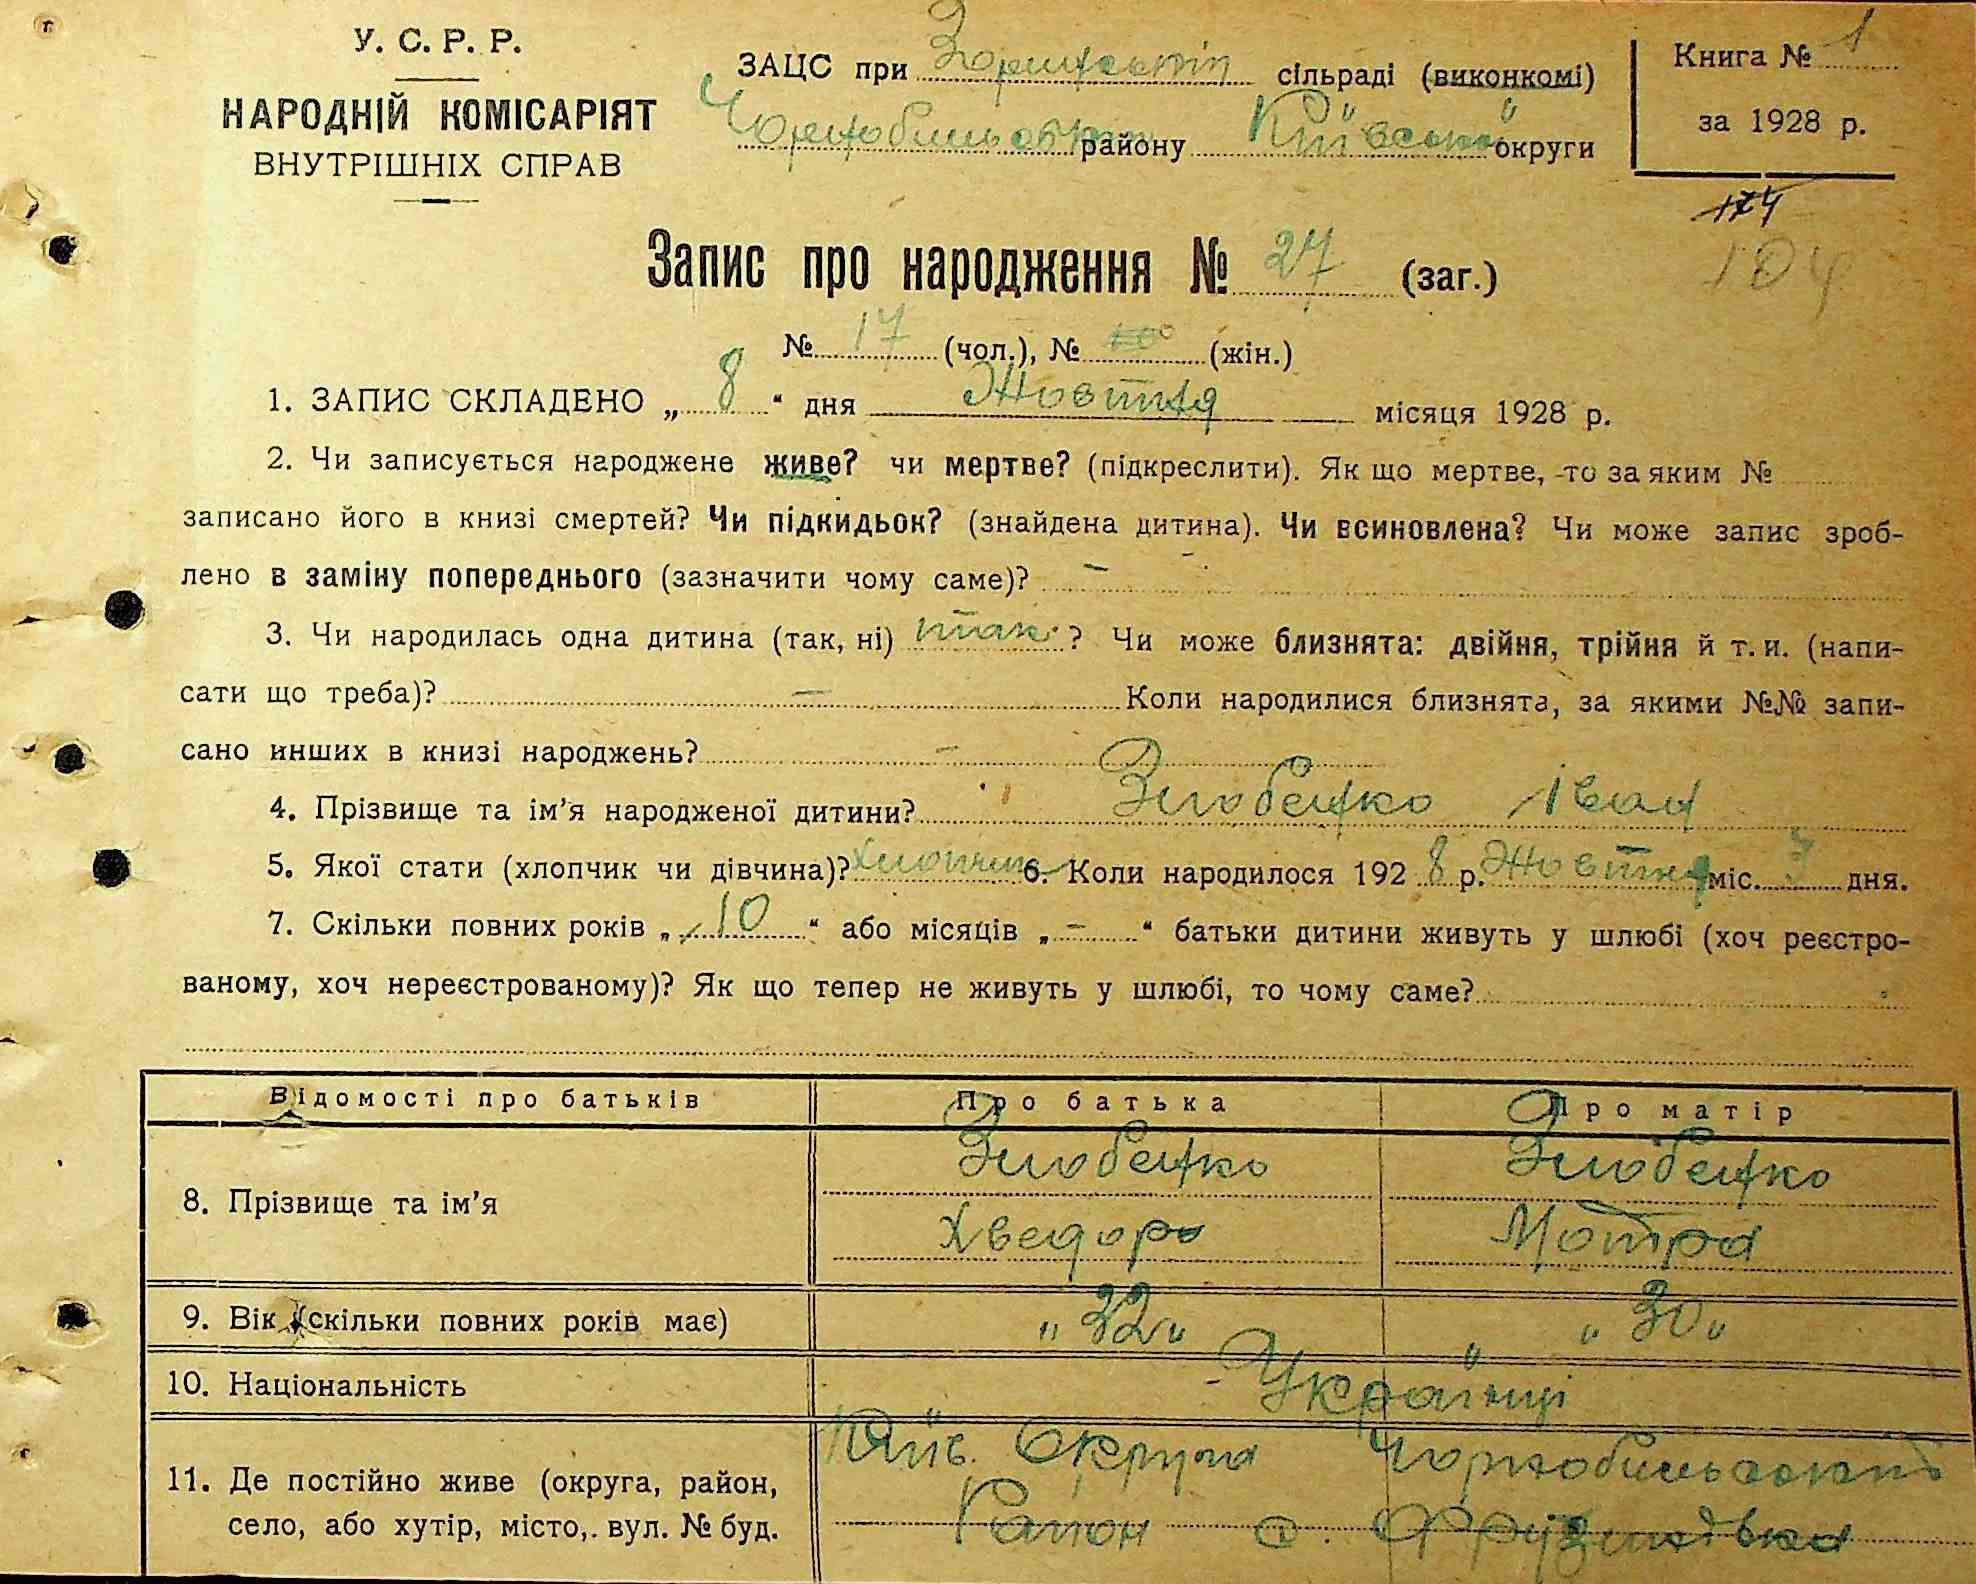 У. С. Р. Р.
НАРОДНІЙ КОМІСАРІЯТ
ВНУТРІШНІХ СПРАВ
ЗАЦС при Зоринській сільраді (виконкомі)
Чорнобильськ району Київської округи
Книга № 1
за 1928 р.
174
104
Запис про народження № 27 (заг.)
№ 17 (чол.), № (жін.)
1. ЗАПИС СКЛАДЕНО „ 8 “ дня Жовтня місяця 1928 р.
2. Чи записується народжене живе? чи мертве? (підкреслити). Як що мертве, то за яким №
записано його в книзі смертей? Чи підкидьок? (знайдена дитина). Чи всиновлена? Чи може запис зроб-
лено в заміну попереднього (зазначити чому саме)? –
3. Чи народилась одна дитина (так, ні) так ? Чи може близнята: двійня, трійня й т. и. (напи-
сати що треба)? – Коли народилися близнята, за якими №№ запи-
сано инших в книзі народжень? –
4. Прізвище та ім'я народженої дитини? Злобенко Іван
5. Якої стати (хлопчик чи дівчина)? хлопчик 6. Коли народилося 192 8 р. Жовтня міс. 7 дня.
7. Скільки повних років „ 10 “ або місяців „ – “ батьки дитини живуть у шлюбі (хоч реєстро-
ваному, хоч нереєстрованому)? Як що тепер не живуть у шлюбі, то чому саме?
Відомості про батьків Про батька Про матір
8. Прізвище та ім'я Злобенко Хведорь Злобенко Мотра
9. Вік (скільки повних років має) „ 32 „ „ 30 „
10. Національність Українці
11. Де постійно живе (округа, район, Київ. Округа Чорнобильський
село, або хутір, місто, вул. № буд. Район с. Фрузинівка